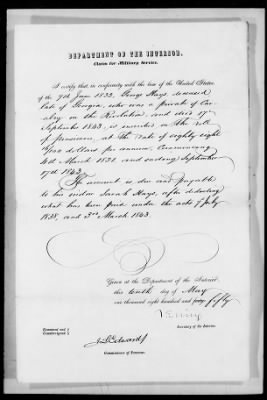 DEPARTMENT OF THE INTERIOR.
Claim for Military Service.
I certify that, in conformity with the law of the United States,
of the 7th June 1832, George Hays, deceased
late of Georgia, who was a private of Ca-
valry in the Revolution, and died 17
September 1843, is inscribed on the Roll
of pensioners, at the rate of eighty eight
dollars per annum, Commencing
4th March 1831, and ending September
17th 1843.
The amount is due and payable
to his widow Sarah Hays, after deducting
what has been paid under the acts 7 July
1838, and 3rd March 1843.
Given at the Department of the Interior
this tenth day of May
one thousand eight hundred and fifty
T Ewing
Secretary of the Interior.
Examined and
Countersigned
J L Edwards
Commissioner of Pensions.